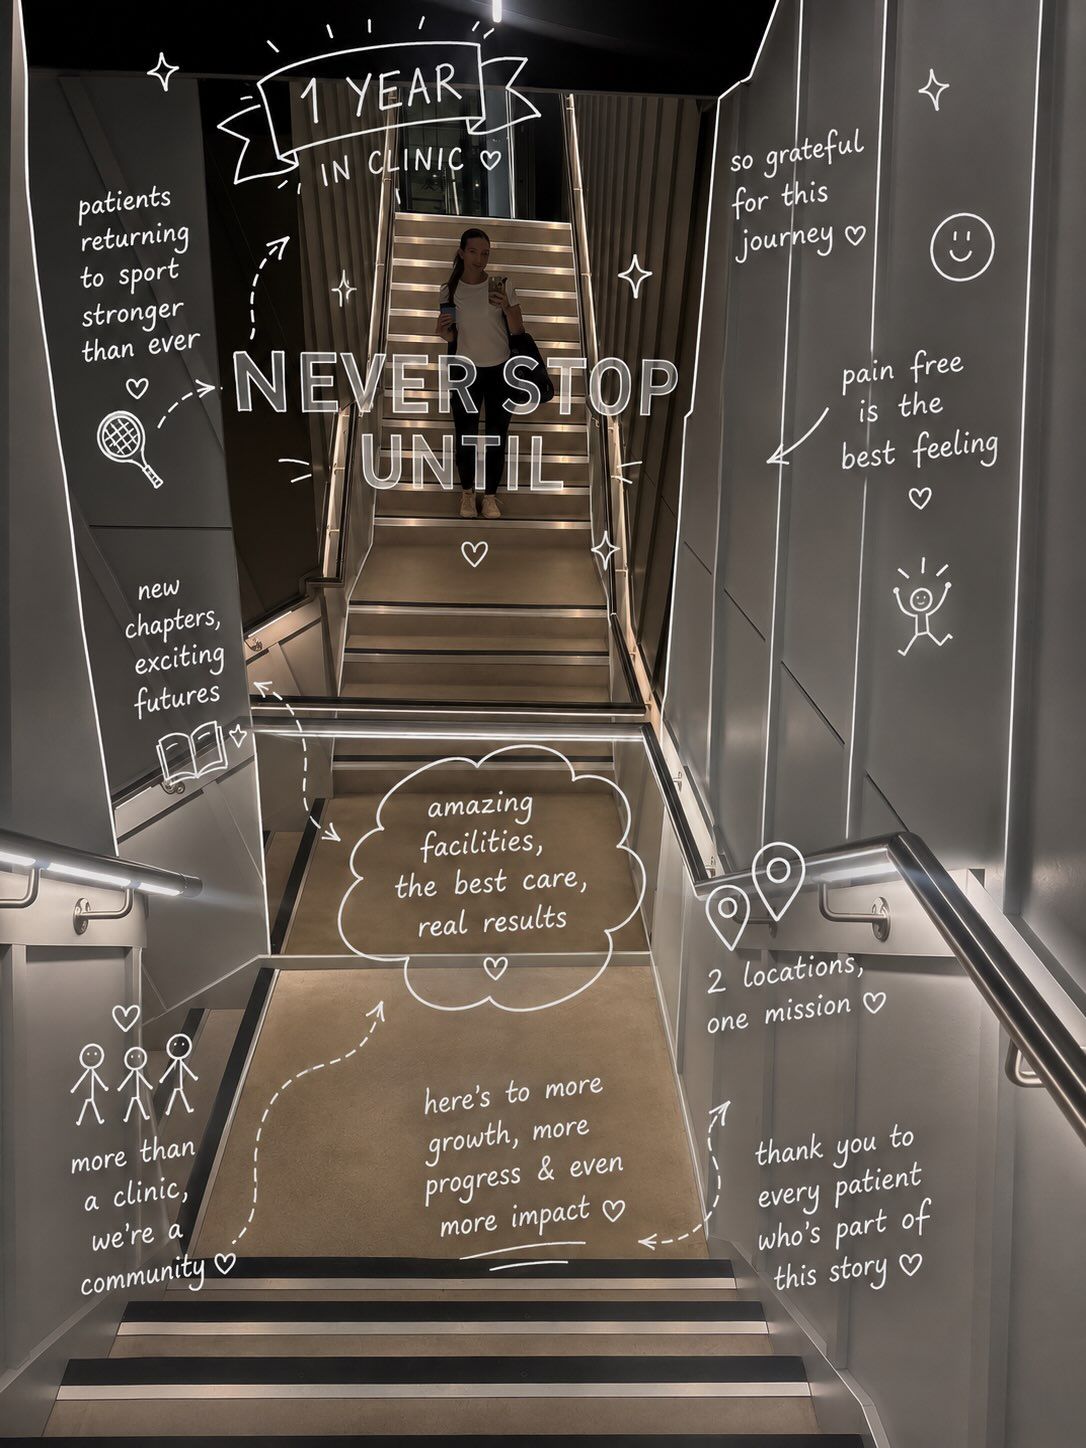 1 YEAR
IN CLINIC
patients
returning
to sport
stronger
than ever
so grateful
for this
journey
NEVER STOP
UNTIL
pain free
is the
best feeling
new
chapters,
exciting
futures
amazing
facilities,
the best care,
real results
2 locations,
one mission
more than
a clinic,
we're a
community
here's to more
growth, more
progress & even
more impact
thank you to
every patient
who's part of
this story